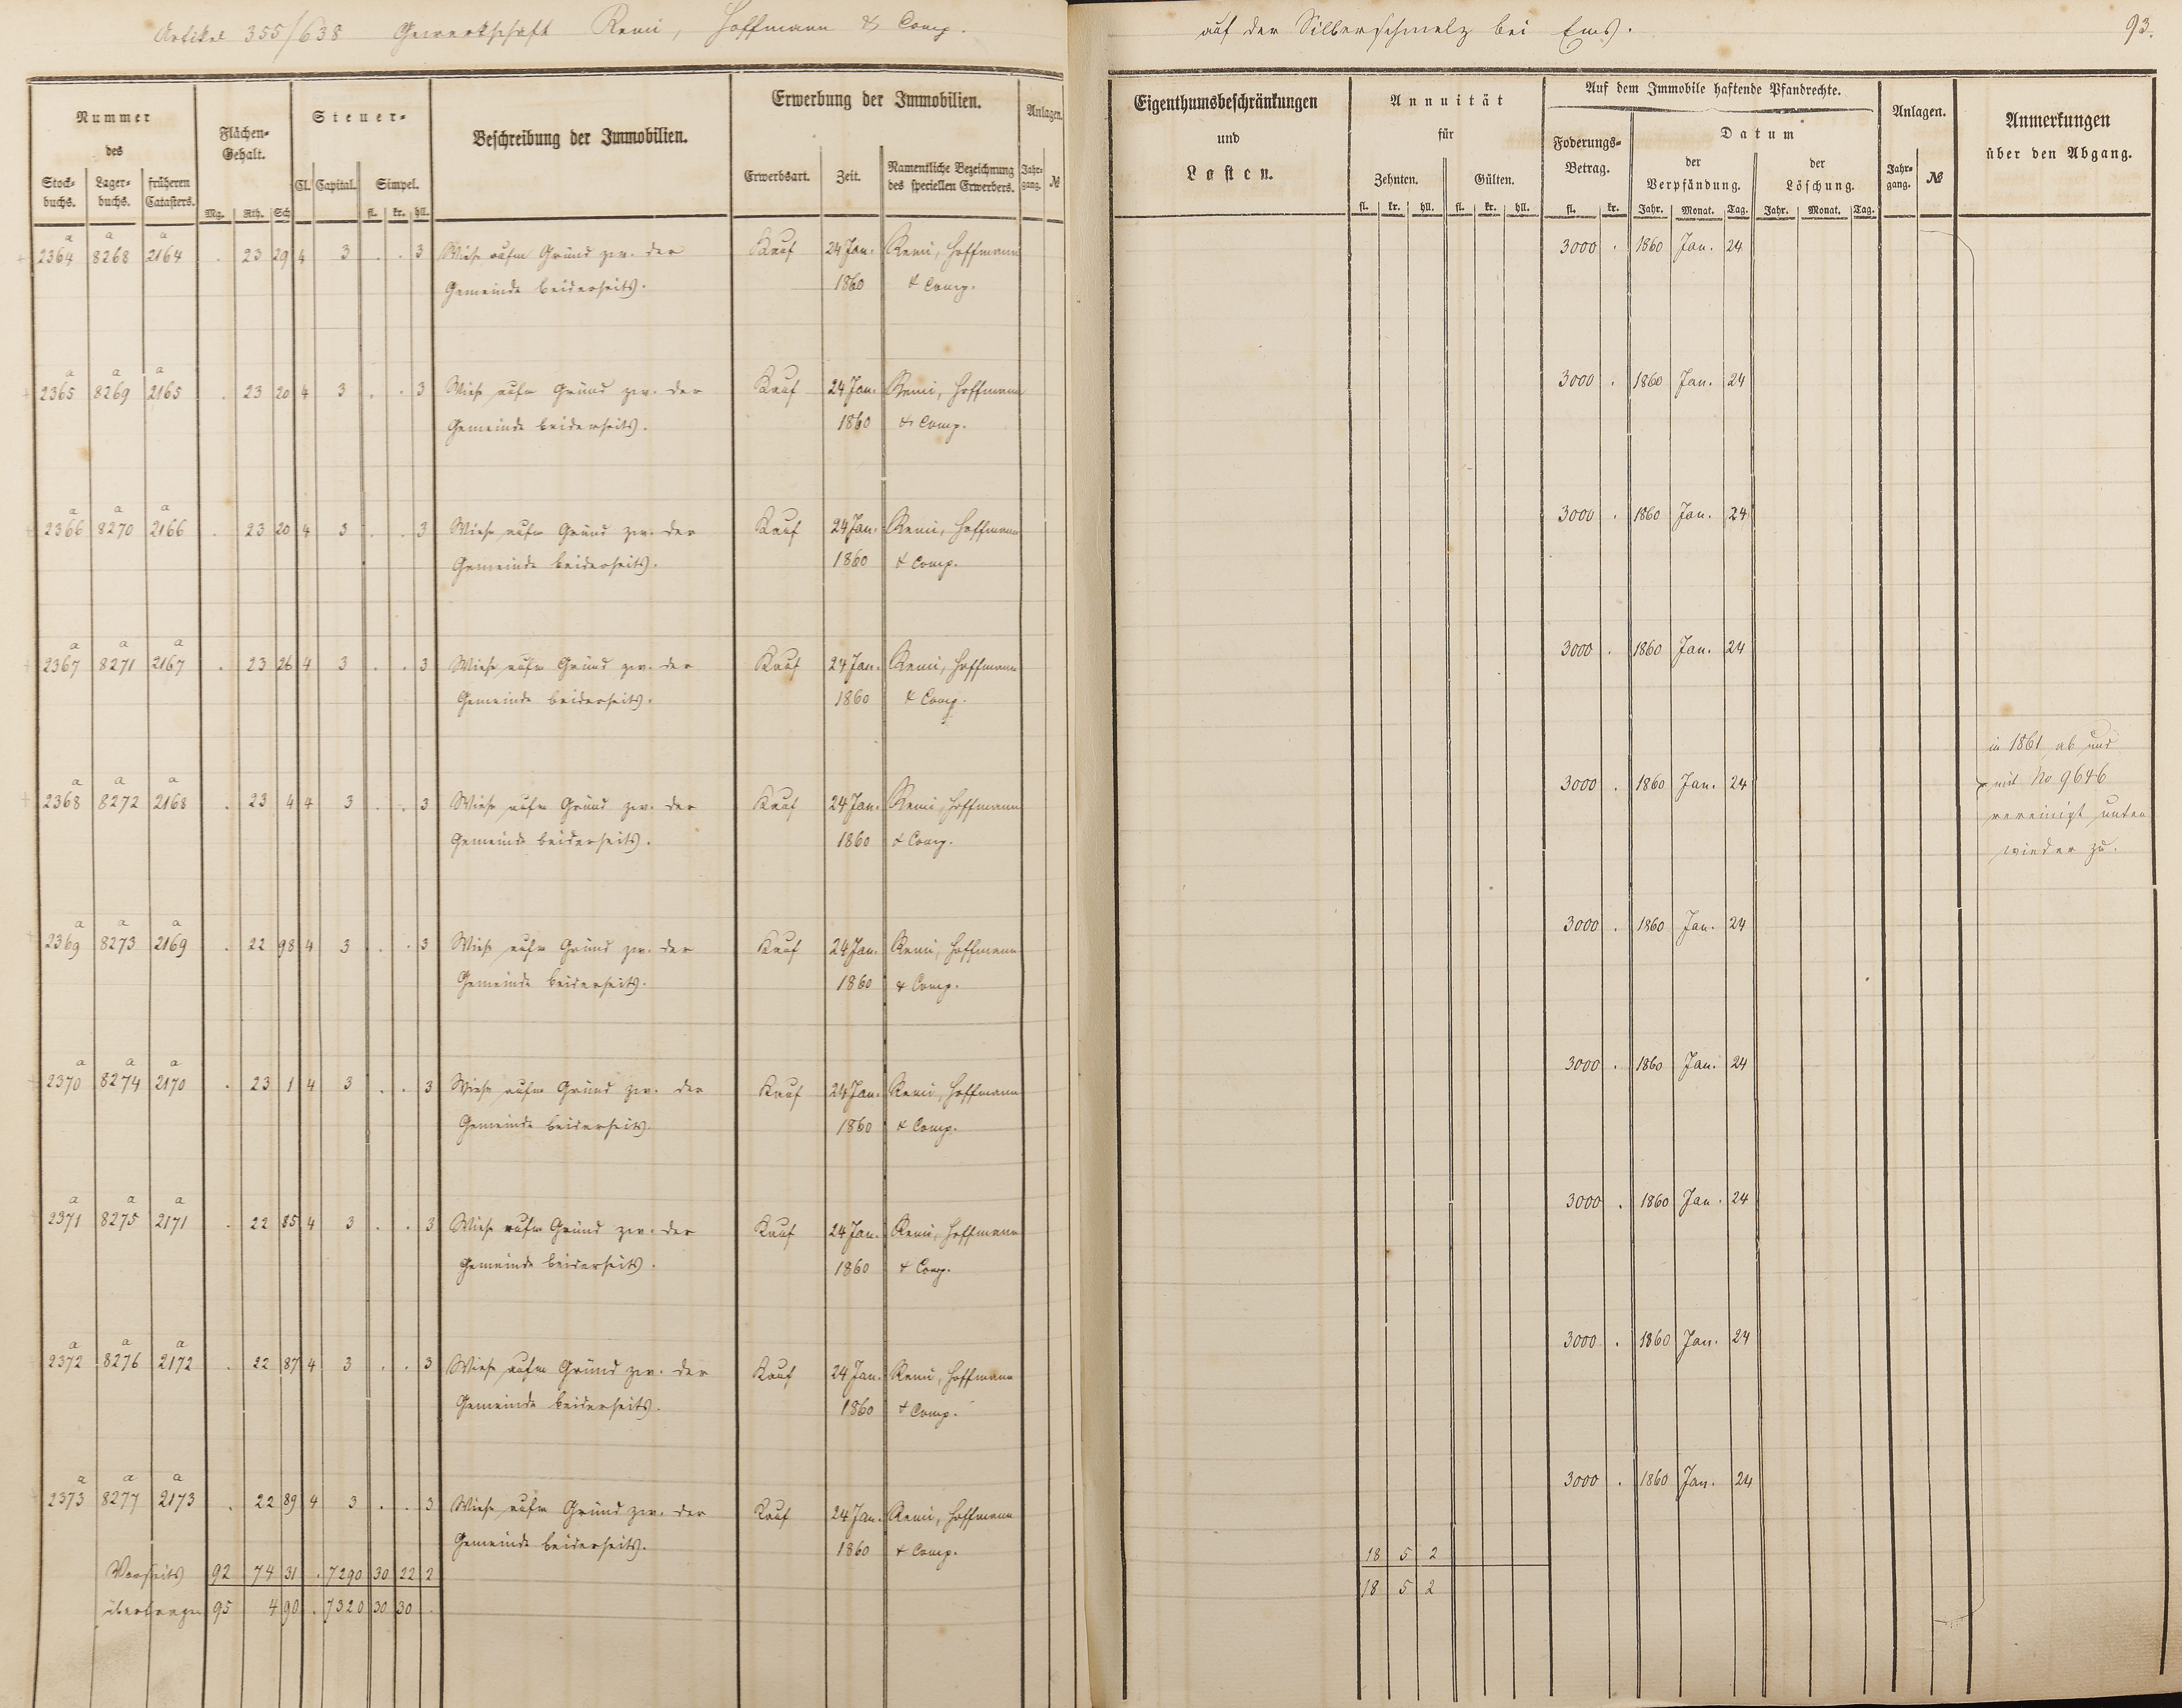 Artikel 355/638 Gewerkschaft Remi, Hoffmann & Comp.
auf der Silberschmelz bei Ems. 93.
Nummer
des
Stock-
buchs. Lager-
buchs. früheren
Catasters.
Flächen-
Gehalt.
Mg. Rth. Sch
Steuer-
Cl. Capital. Simpel.
fl. kr. hll.
Beschreibung der Immobilien.
Erwerbung der Immobilien.
Erwerbsart. Zeit. Namentliche Bezeichnung
des speciellen Erwerbers.
Anlagen.
Jahr-
gang. №
Eigenthumsbeschränkungen
und
Lasten.
Annuität
für
Zehnten. Gülten.
fl. kr. hll. fl. kr. hll.
Auf dem Immobile haftende Pfandrechte.
Foderungs-
Betrag.
fl. kr.
Datum
der
Verpfändung. der
Löschung.
Jahr. Monat. Tag. Jahr. Monat. Tag.
Anlagen.
Jahr-
gang. №
Anmerkungen
über den Abgang.
a a
2364 8268 2164 . 23 29 4 3 . . 3 Wiese aufm Grund zw. der Kauf 24 Jan. Remi, Hoffmann 3000 . 1860 Jan. 24
Gemeinde beiderseits. 1860 & Comp.
a a a
2365 8269 2165 . 23 20 4 3 . . 3 Wiese aufm Grund zw. der Kauf 24 Jan. Remi, Hoffmann 3000 . 1860 Jan. 24
Gemeinde beiderseits. 1860 & Comp.
a a a
2366 8270 2166 . 23 20 4 3 . . 3 Wiese aufm Grund zw. der Kauf 24 Jan. Remi, Hoffmann 3000 . 1860 Jan. 24
Gemeinde beiderseits. 1860 & Comp.
a a a
2367 8271 2167 . 23 26 4 3 . . 3 Wiese aufm Grund zw. der Kauf 24 Jan. Remi, Hoffmann 3000 . 1860 Jan. 24
Gemeinde beiderseits. 1860 & Comp.
a a a
2368 8272 2168 . 23 4 4 3 . . 3 Wiese aufm Grund zw. der Kauf 24 Jan. Remi, Hoffmann 3000 . 1860 Jan. 24
Gemeinde beiderseits. 1860 & Comp.
in 1861 ab und
mit No 9646
vereinigt unten
wieder zu.
a a a
2369 8273 2169 . 22 98 4 3 . . 3 Wiese aufm Grund zw. der Kauf 24 Jan. Remi, Hoffmann 3000 . 1860 Jan. 24
Gemeinde beiderseits. 1860 & Comp.
a a a
2370 8274 2170 . 23 1 4 3 . . 3 Wiese aufm Grund zw. der Kauf 24 Jan. Remi, Hoffmann 3000 . 1860 Jan. 24
Gemeinde beiderseits. 1860 & Comp.
a a a
2371 8275 2171 . 22 85 4 3 . . 3 Wiese aufm Grund zw. der Kauf 24 Jan. Remi, Hoffmann 3000 . 1860 Jan. 24
Gemeinde beiderseits. 1860 & Comp.
a a a
2372 8276 2172 . 22 87 4 3 . . 3 Wiese aufm Grund zw. der Kauf 24 Jan. Remi, Hoffmann 3000 . 1860 Jan. 24
Gemeinde beiderseits. 1860 & Comp.
a a a
2373 8277 2173 . 22 89 4 3 . . 3 Wiese aufm Grund zw. der Kauf 24 Jan. Remi, Hoffmann 3000 . 1860 Jan. 24
Gemeinde beiderseits. 1860 & Comp.
Vorseits 92 74 31 . 7290 30 22 2 18 5 2
übertragen 95 4 90 . 7320 30 30 . 18 5 2